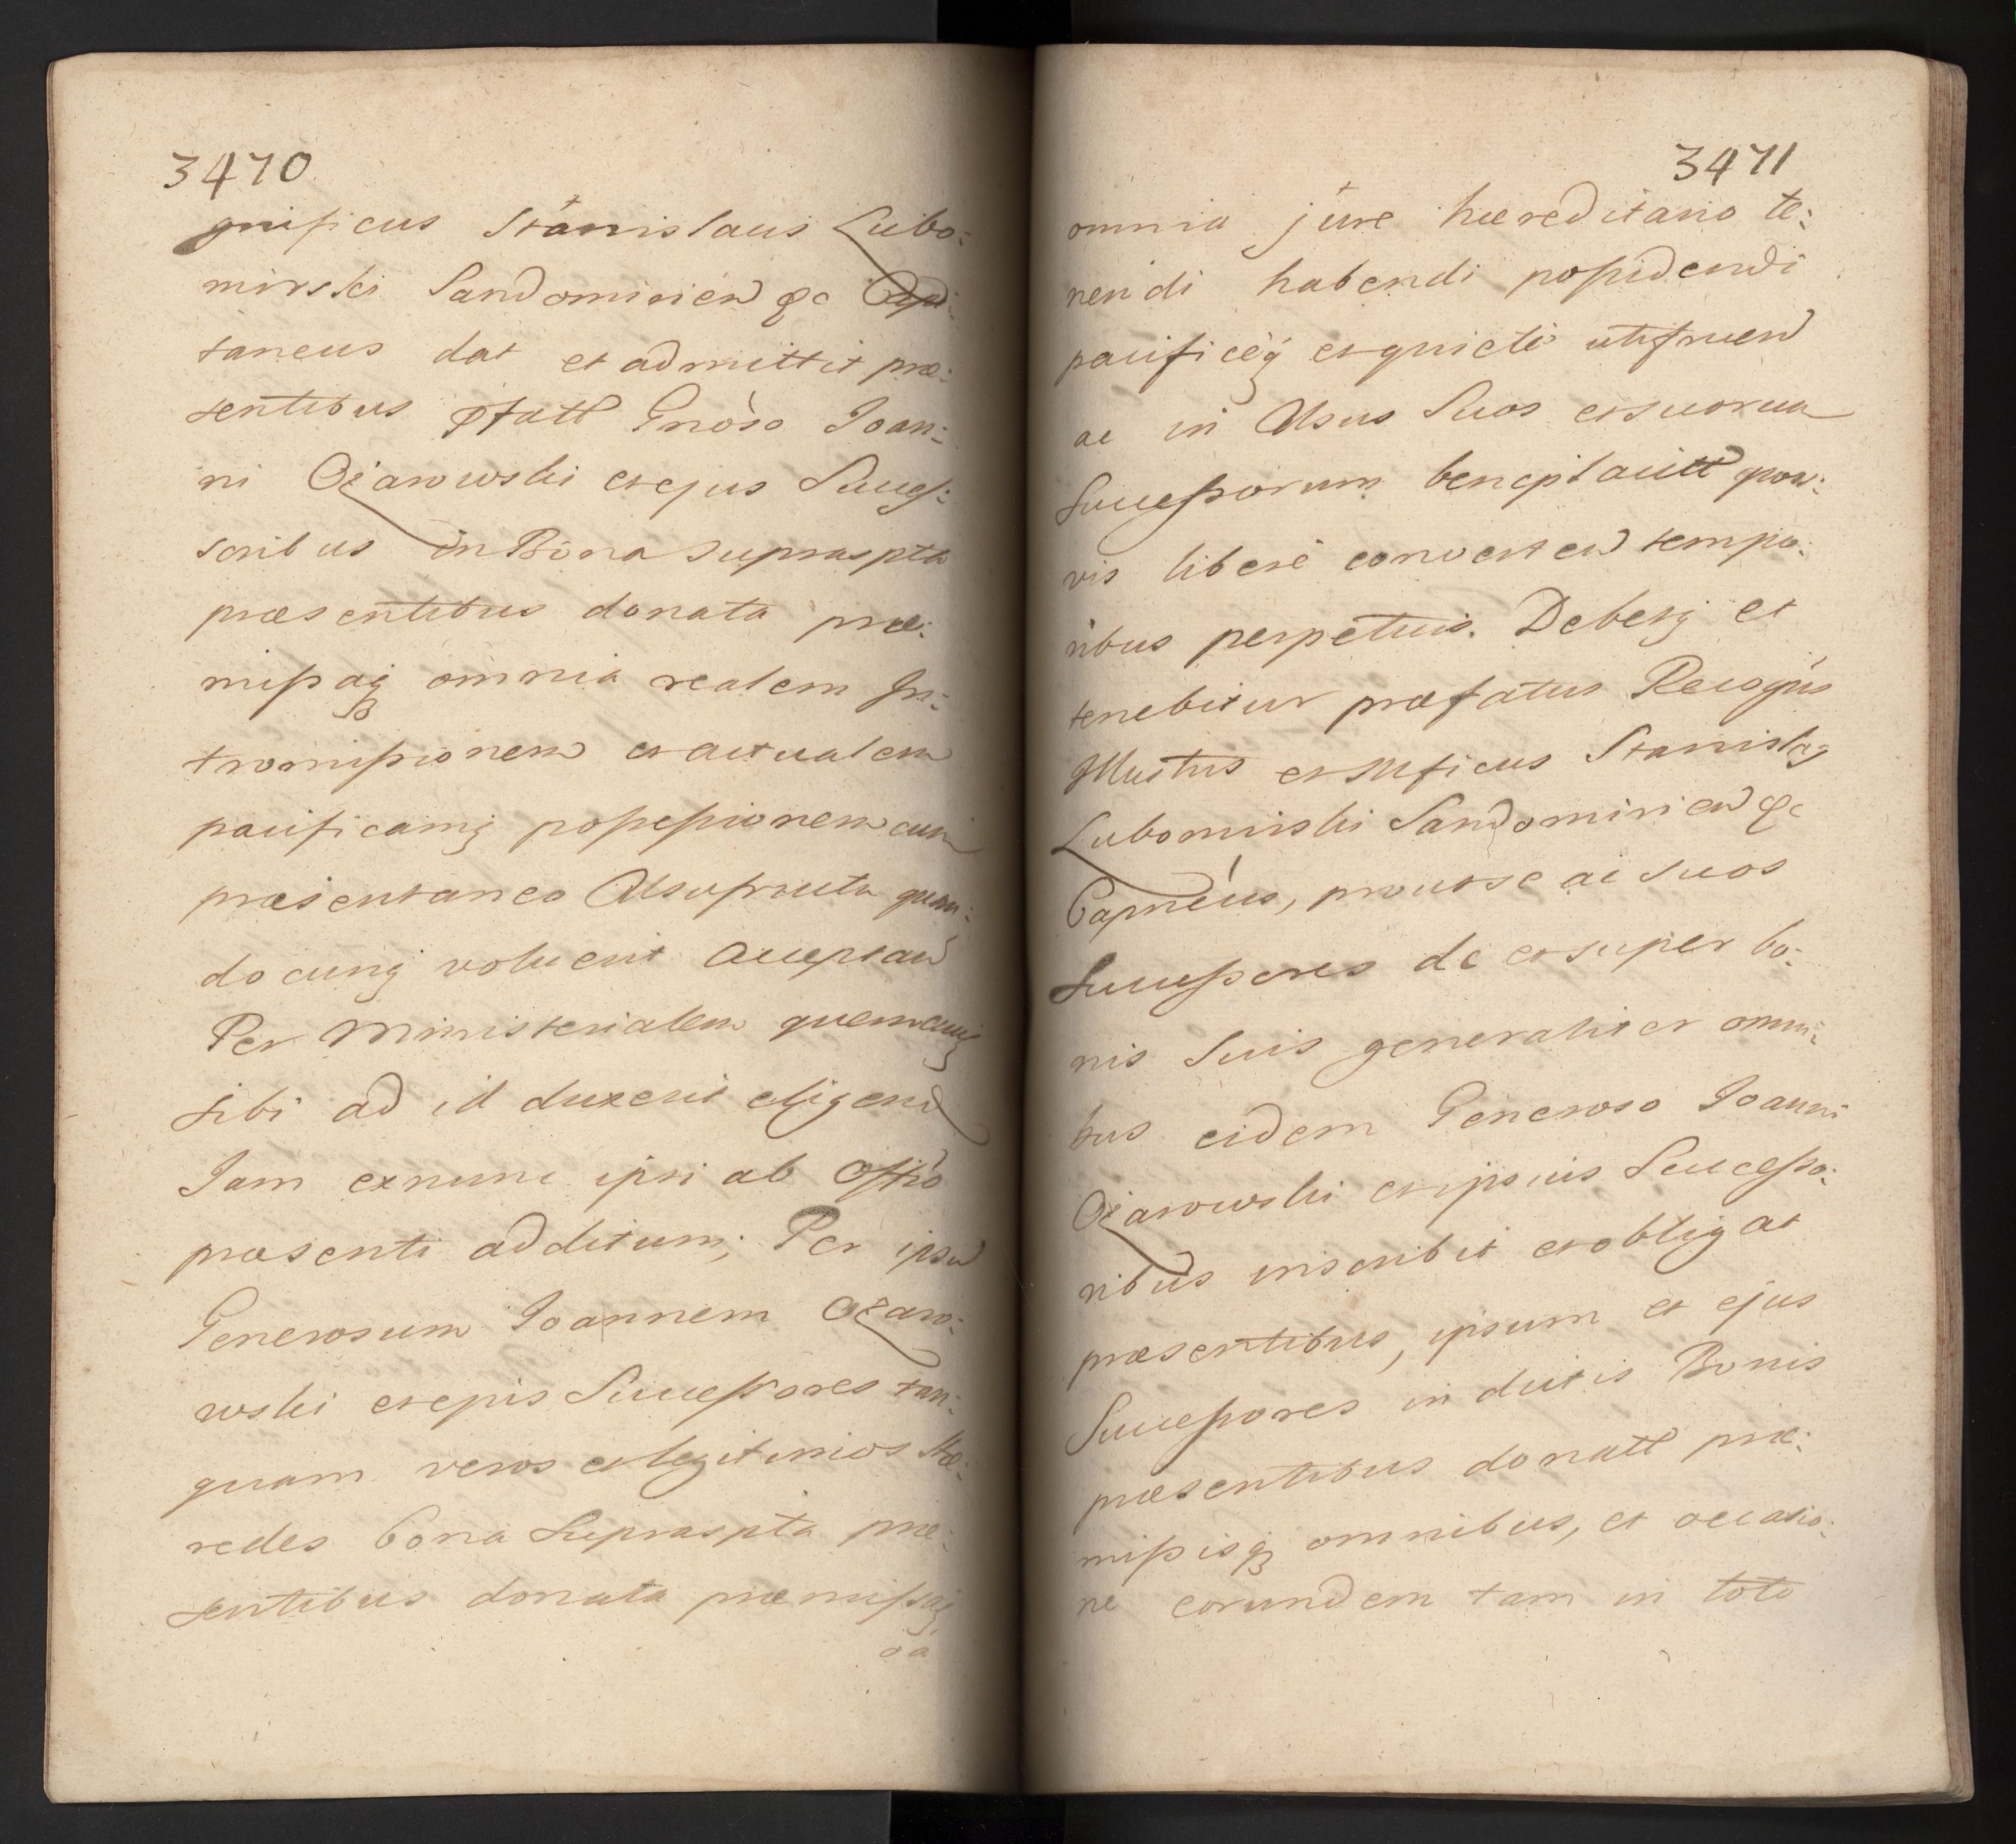 3470
gnificus Stanislaus Lubo:
mirski Sandomirien &c Capi:
taneus dat et admittit præ:
sentibus pfatt Gnoso Joan:
ni Ożarowski et ejus Succes:
soribus in Bona supraspta
præsentibus donata præ:
missaq omnia realem In:
tromissionem et actualem
pacificamq possessionem cum
præsentaneo Usufructu quan:
documq voluerit acceptand
Per Ministerialem quemcumq
sibi ad id duxerit eligend
Jam exnunc ipsi ab Offio
præsenti additum; Per ipsu
Generosum Joannem Ożaro:
wski et ejus Successores tan:
quam veros et legitimos Hæ:
redes bona Supraspta præ:
sentibus donata præmissaq
oa
3471
omnia jure hæreditario te:
nendi habendi possidendi
pacificéq et quieté utifruend
ac in Usus Suos et suorum
Successorum beneplacitt quov:
vis liberè convertend tempo:
ribus perpetuis. Debetq et
tenebitur præfatus Recogns
Illustris et Mficus Stanislaq
Lubomirski Sandomirien &c
Capneus, pro ut se ac suos
Successores de et super bo:
nis Suis generaliter omni:
bus eidem Generoso Joanni
Ożarowski et ipsius Successo:
ribus inscribit et obligat
præsentibus, ipsum et ejus
Successores in dictis Bonis
præsentibus donatt præ:
missisq omnibus, et occasio:
ne eorundem tam in toto